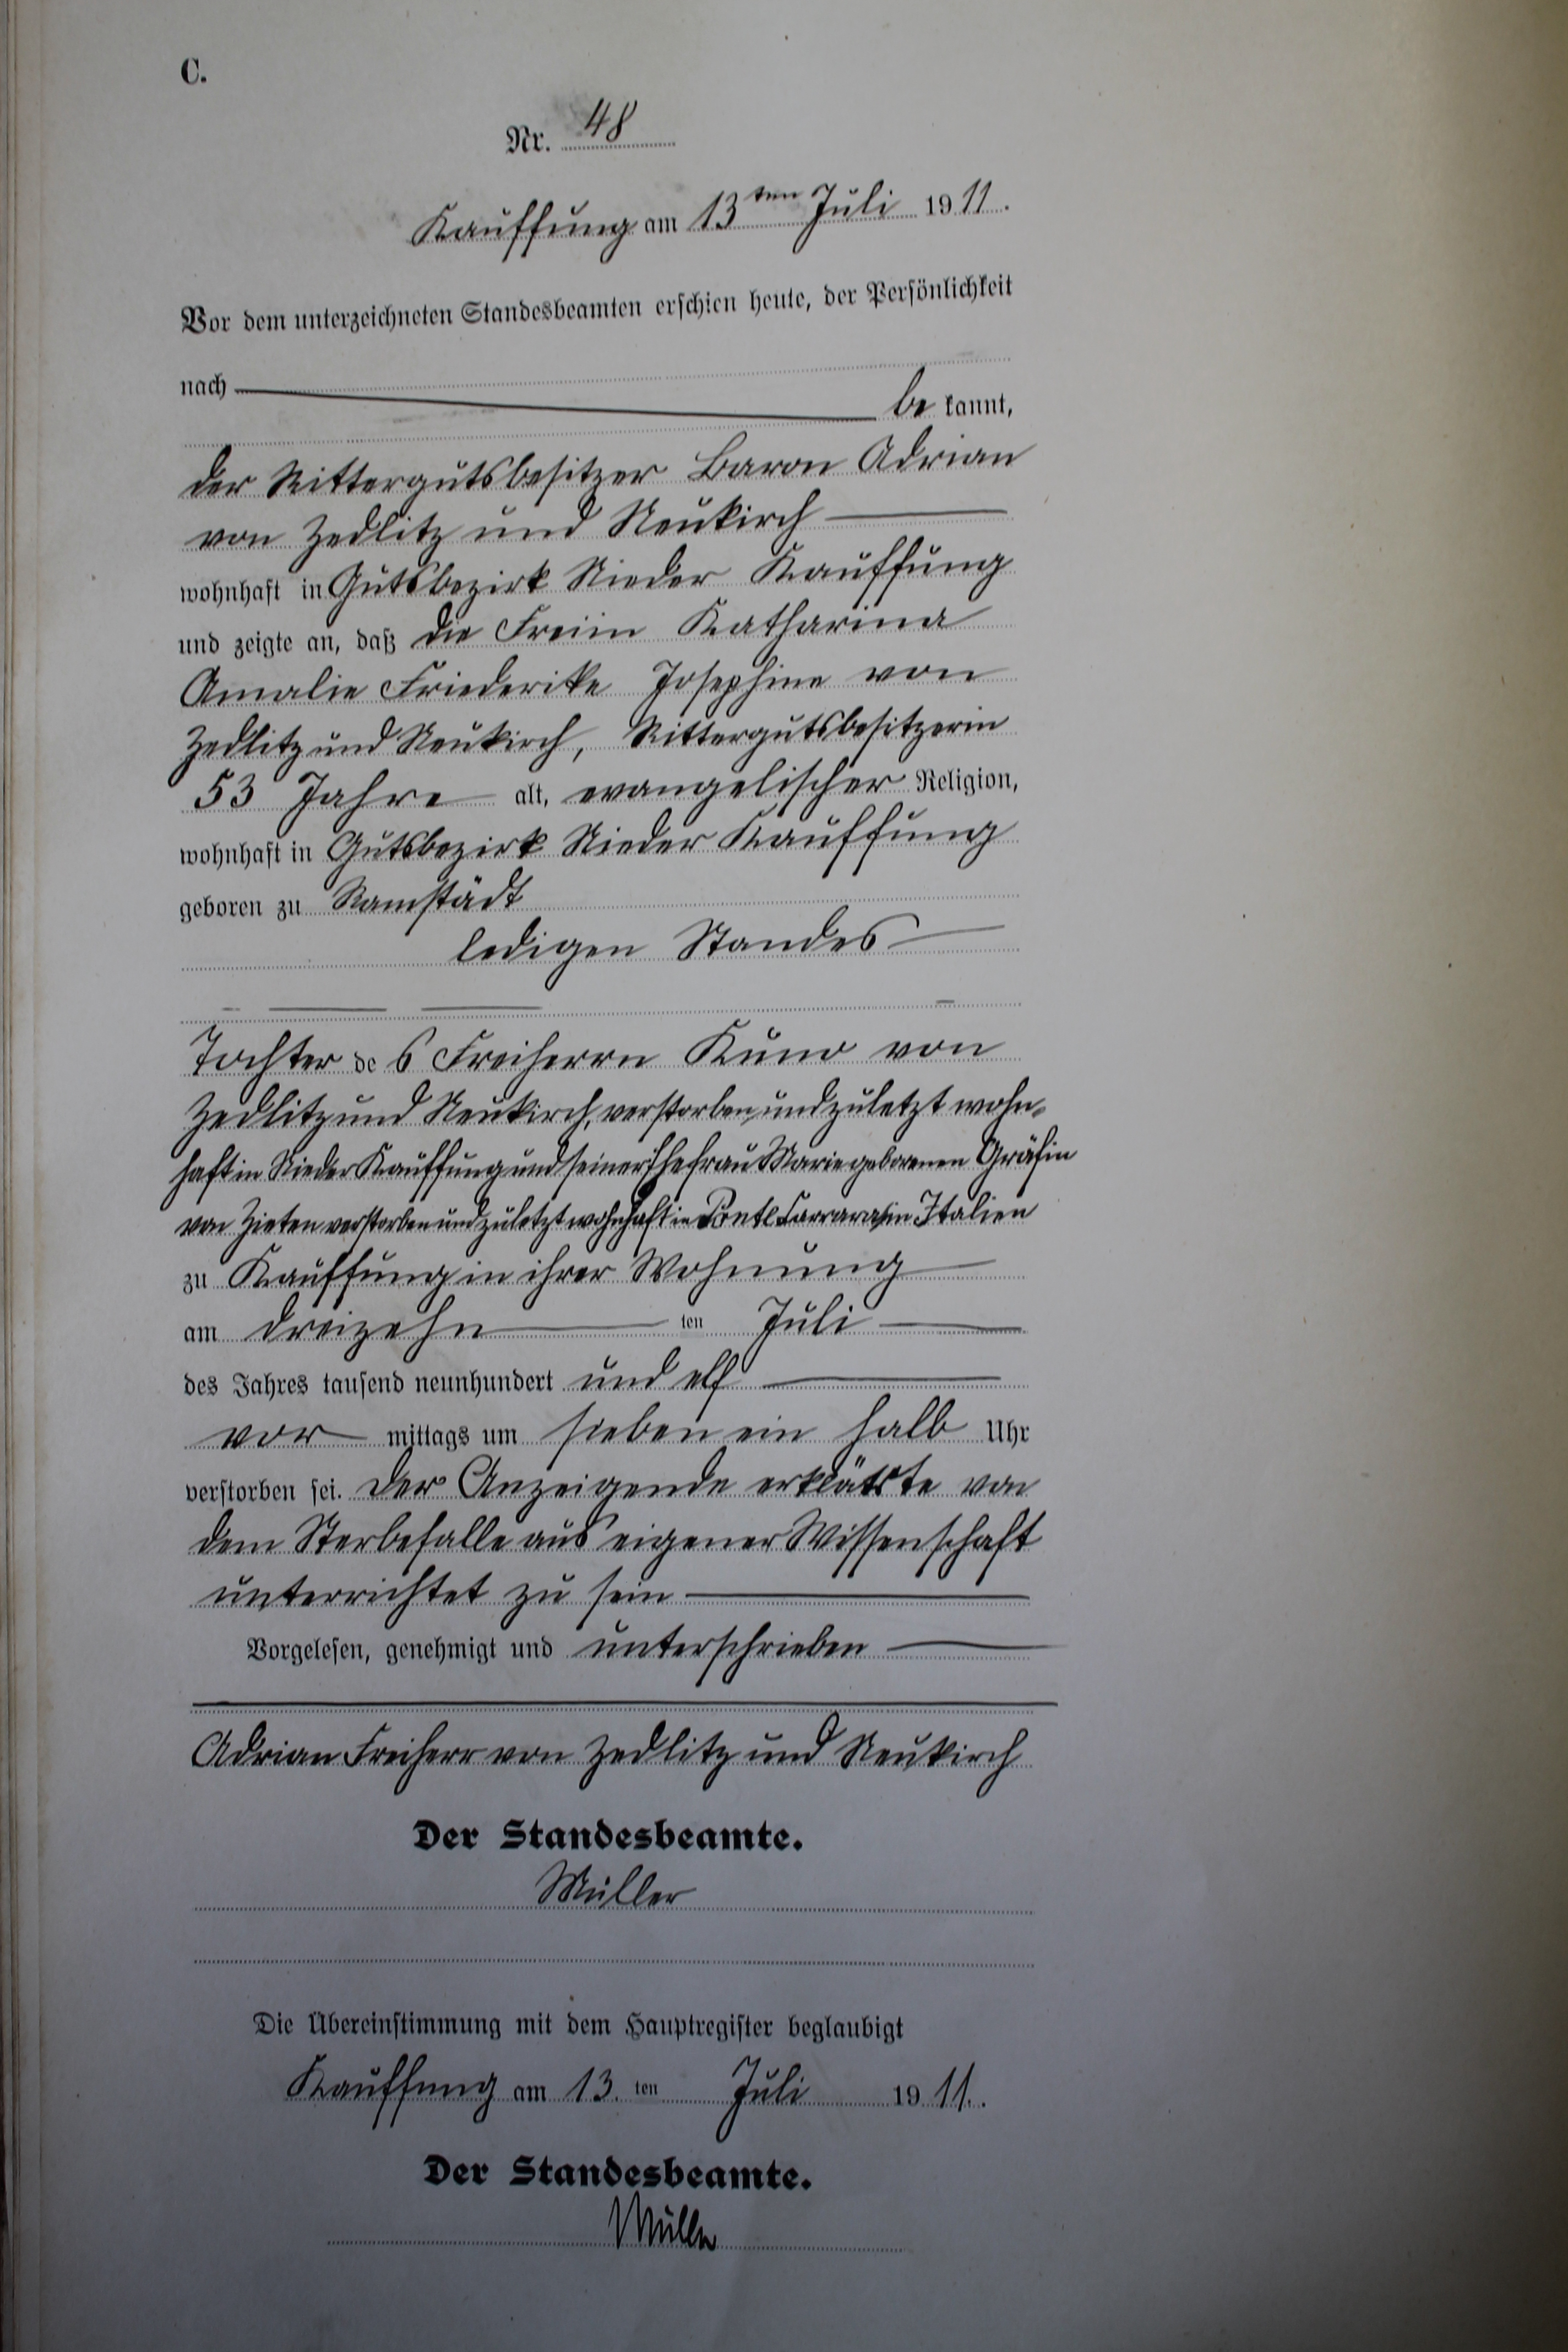 C.
Nr. 48
Kauffung am 13ten Juli 1911.
Vor dem unterzeichneten Standesbeamten erschien heute, der Persönlichkeit
nach
be kannt,
der Rittergutsbesitzer Baron Adrian
von Zedlitz und Neukirch
wohnhaft in Gutsbezirk Nieder Kauffung
und zeigte an, daß die Freiin Katharina
Amalie Friederike Josephine von
Zedlitz und Neukirch, Rittergutsbesitzerin
53 Jahre alt, evangelischer Religion,
wohnhaft in Gutsbezirk Nieder Kauffung
geboren zu Ramstädt
ledigen Standes
Tochter des Freiherrn Kuno von
Zedlitz und Neukirch, verstorben und zuletzt wohn-
haft in Nieder Kauffung und seiner Ehefrau Marie geborenen Gräfin
von Zieten verstorben und zuletzt wohnhaft in in Italien
zu Kauffung in ihrer Wohnung
am dreizehn ten Juli
des Jahres tausend neunhundert und elf
vor mittags um sieben ein halb Uhr
verstorben sei. Der Anzeigende erklärte von
dem Sterbefalle aus eigener Wissenschaft
unterrichtet zu sein
Vorgelesen, genehmigt und unterschrieben
Adrian Freiherr von Zedlitz und Neukirch
Der Standesbeamte.
Müller
Die Übereinstimmung mit dem Hauptregister beglaubigt
Kauffung am 13. ten Juli 1911.
Der Standesbeamte.
Müller